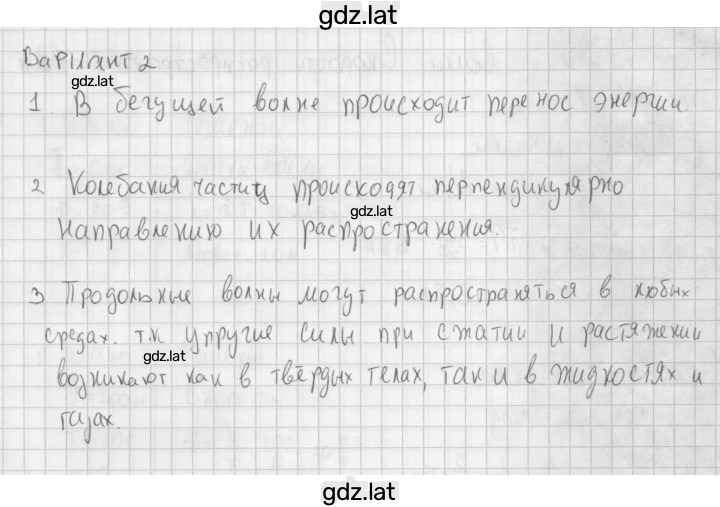 gdz.lat
Вариант 2
gdz.lat
1. В бегущей волне происходит перенос энергии
2 Колебания частиц происходят перпендикулярно
gdz.lat
направлению их распространения.
3 Продольные волны могут распространяться в любых
средах. т.к упругие силы при сжатии и растяжении
gdz.lat
возникают как в твёрдых телах, так и в жидкостях и
газах.
gdz.lat